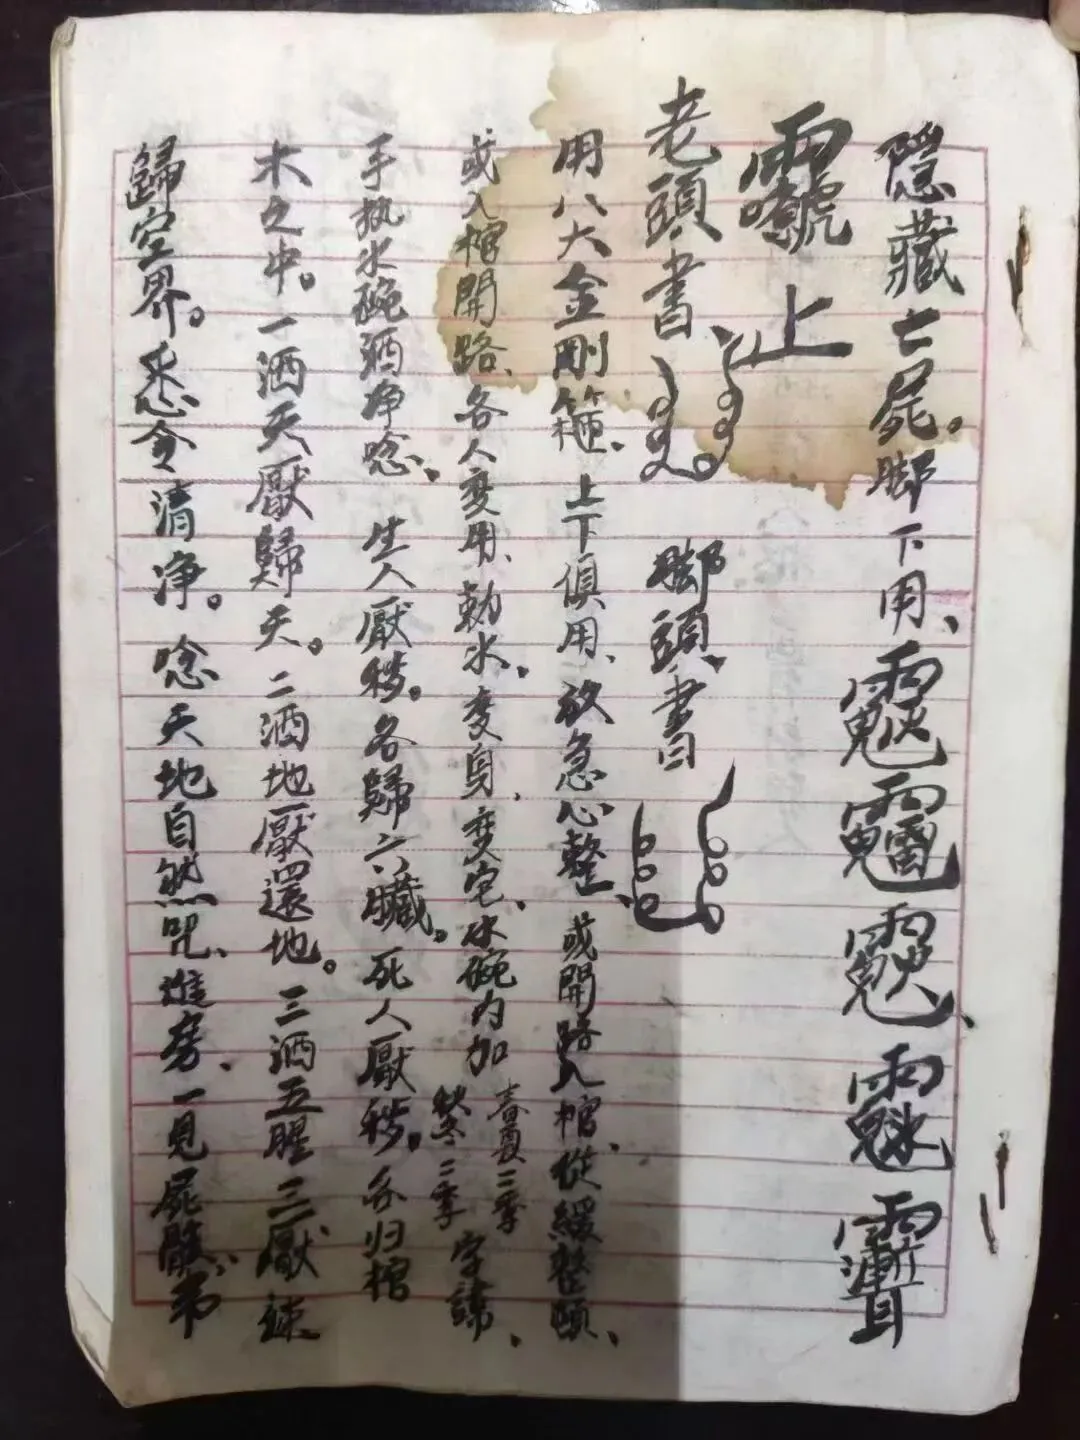 隱藏亡屍。脚下用、
上
老頭書、 脚頭、書
用八大金剛箍、上下俱用、放急心整、或開路入棺、從緩整頓、
或入棺開路、各人变用、勅水。变身、变宅、水碗内加 春夏二季 秋冬二季 字諱、
手执水碗洒净唸、 生人厭秽。各歸六臟。死人厭秽。各归棺
木之中。一洒天厭歸天。二洒地厭還地。三洒五腥三厭
歸空界。悉令清净。唸天地自然咒、進旁、一見屍骸、